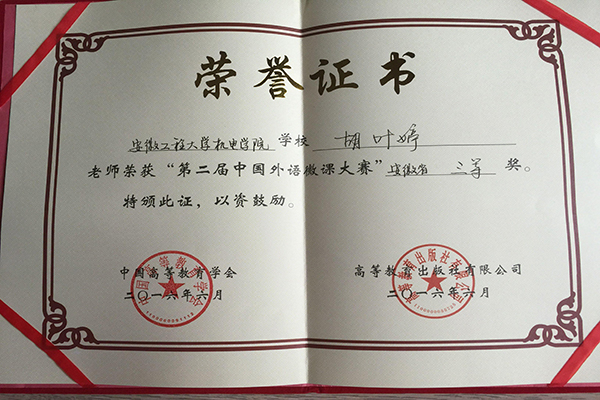 荣誉证书
安徽工程大学机电学院 学校 胡叶婷
老师荣获“第二届中国外语微课大赛”安徽省 三等 奖。
特颁此证，以资鼓励。
中国高等教育学会 高等教育出版社有限公司
二〇一六年六月 二〇一六年六月
中国高等教育学会
高等教育出版社有限公司